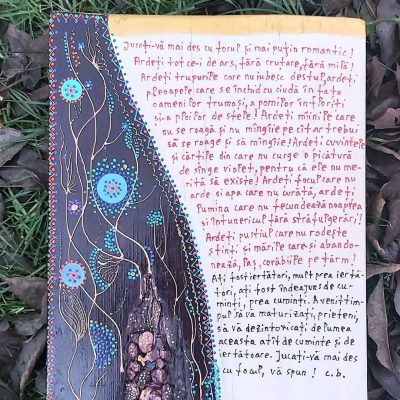 Jucați-vă mai des cu focul și mai puțin romantic!
Ardeți tot ce-i de ars, fără cruțare, fără milă!
Ardeți trupurile care nu iubesc destul, ardeți
pleoapele care se închid cu ciudă în fața
oamenilor frumoși, a pomilor înfloriți
și-a ploilor de stele! Ardeți mîinile care
nu se roagă și nu mîngîie pe cît ar trebui
să se roage și să mîngîie! Ardeți cuvintele
și cărțile din care nu curge o picătură
de sînge violet, pentru că ele nu me-
rită să existe! Ardeți focul care nu
arde și apa care nu curăță, ardeți
lumina care nu fecundează noaptea
și întunericul fără străfulgerări!
Ardeți pustiul care nu rodește
sfinți și mările care-și abando-
nează, laș, corăbiile pe țărm!
Ați fost iertători, mult prea iertă-
tori, ați fost îndeajuns de cu-
minți, prea cuminți. Avenit tim-
pul să vă maturizați, prieteni,
să vă dezintoxicați de lumea
aceasta atît de cuminte și de
iertătoare. Jucați-vă mai des
cu focul, vă spun! c.b.